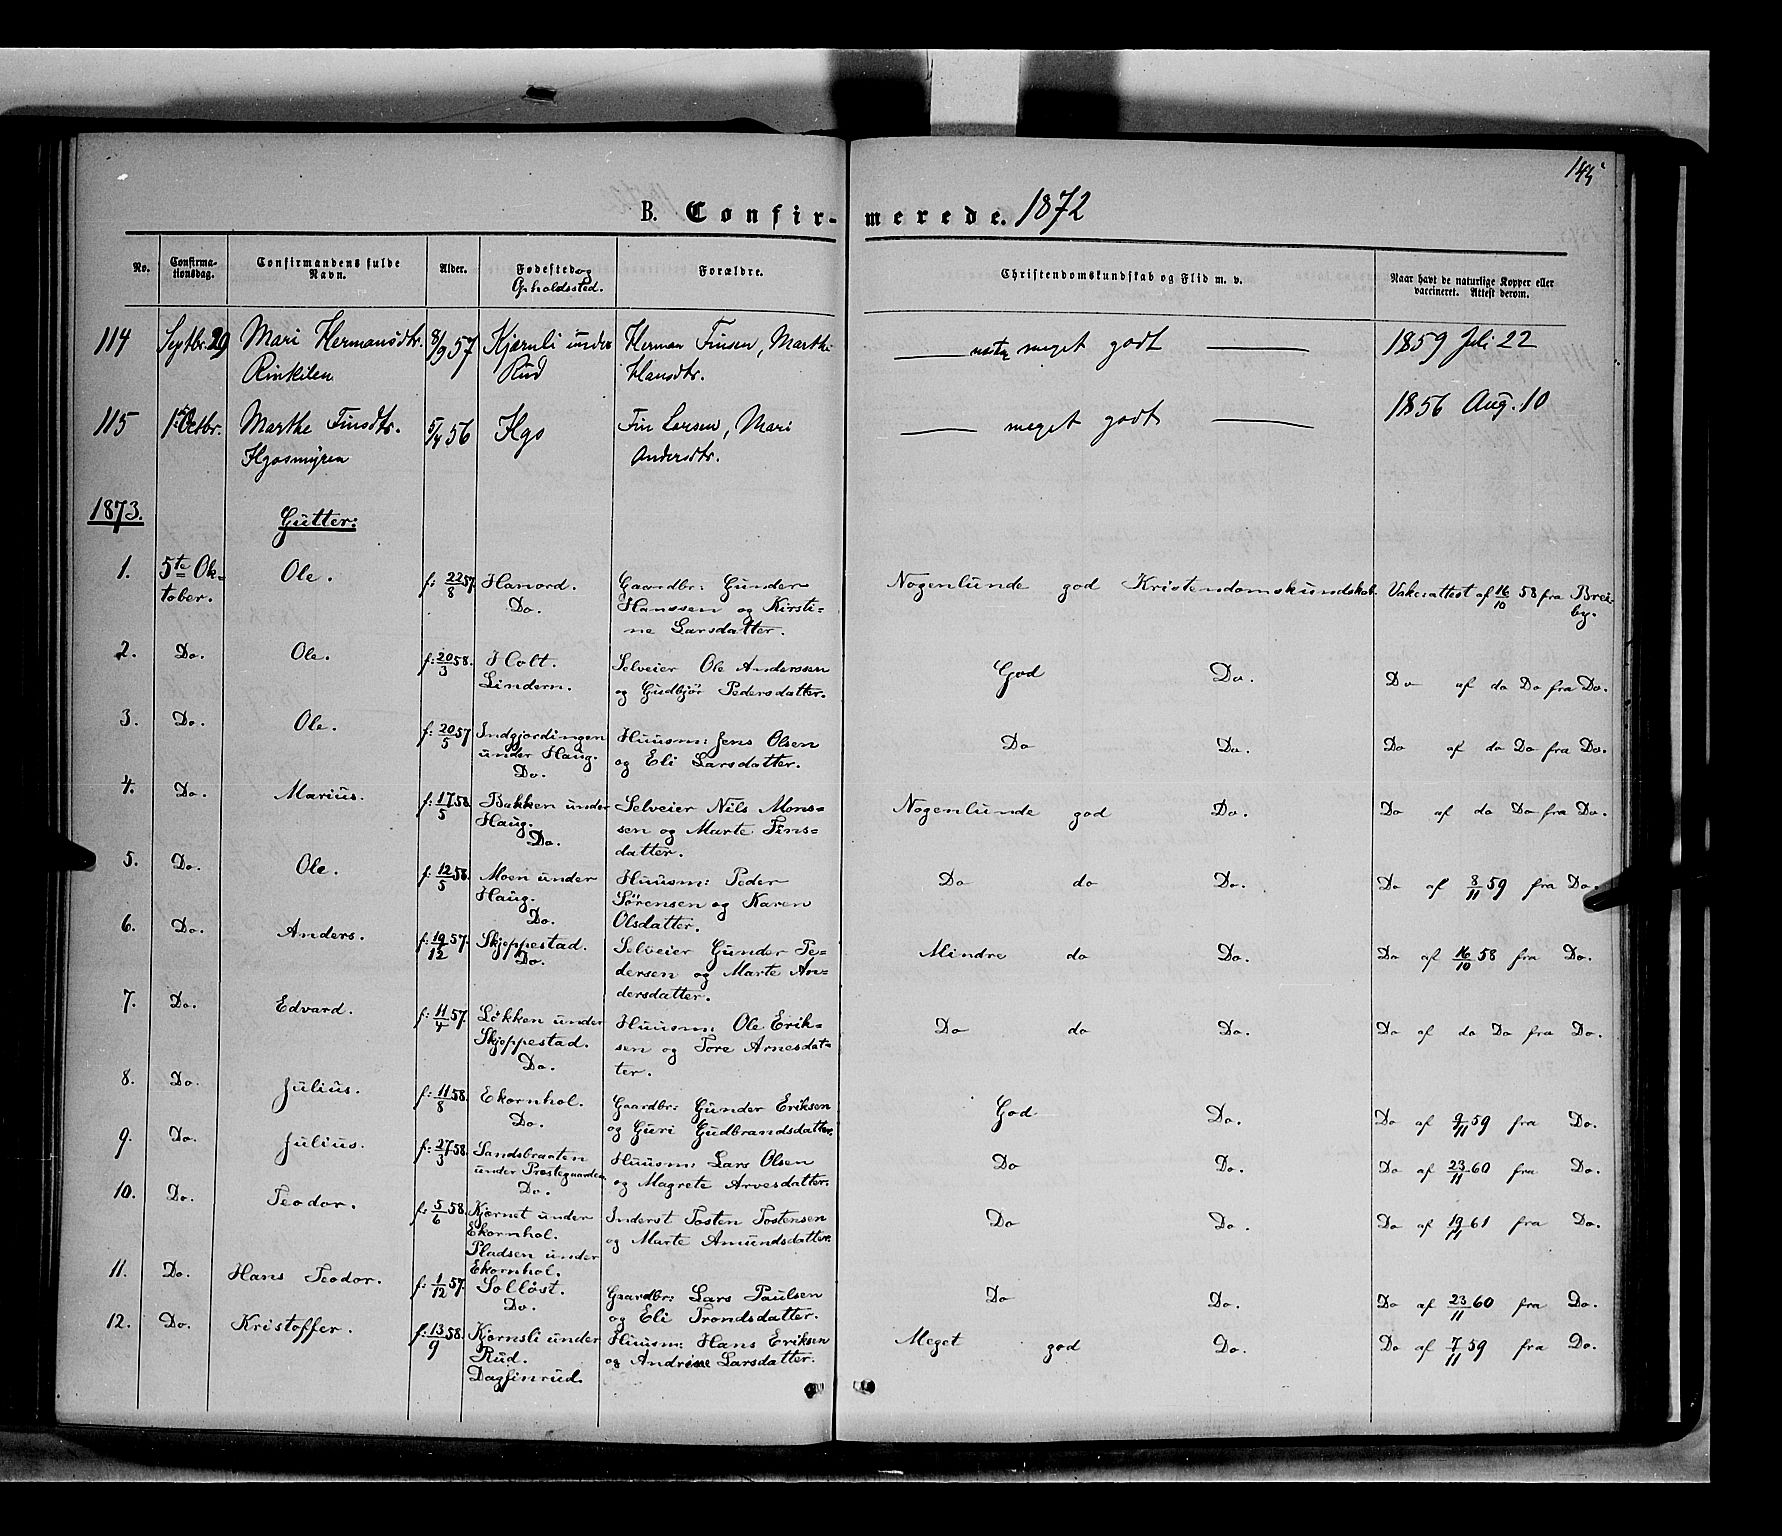 145
B. Confirmerede. 1872
No. Confirmationsdag. Confirmandens fulde Navn. Alder. Fødested og Opholdssted. Forældre. Christendomskundskab og Flid m. v. Naar havt de naturlige Kopper eller vaccineret. Attest derom.
114 Septbr. 29 Mari Hermansdtr. 8/9 57 Kjærnli under Herman Finsen, Marthe meget godt 1859 Juli 22
Rinkilen Rud Hansdtr.
115 1ste Octbr. Marthe Finsdtr. 5/4 56 Ilgo Fin Larsen, Mari meget godt 1856 Aug. 10
Ilgosmyren Andersdtr.
1873. Gutter:
1. 5te Ok- Ole. f: 22/8 57 Hanord. Gaardbr: Gunder Nogenlunde god Kristendomskundskab. Vakcattest af 16/10 58 fra Brei-
tober. Do. Hanssen og Kirsti- by.
ne Larsdatter.
2. Do. Ole. f: 20/3 58. Holt. Selveier Ole Anderssen God Do. Do af do Do fra Do.
Lindern. og Gudbjør Pedersdatter.
3. Do. Ole. f: 20/5 57 Indgjordingen Huusm: Jens Olsen Do Do. Do af do Do fra Do.
under Haug. og Eli Larsdatter.
Do.
4. Do. Marius. f: 17/5 58 Bakken under Selveier Nils Mons= Nogenlunde god Do. Do af do Do fra Do.
Haug. sen og Marte Fins=
Do. datter.
5. Do. Ole. f: 12/5 58. Moen under Huusm: Peder Do do Do. Do af 8/11 59 fra Do.
Haug. Sørensen og Karen
Do. Olsdatter.
6. Do. Anders. f: 19/12 57. Skjeppestad. Selveier Gunder Pe- Mindre do Do. Do af 16/10 58 fra Do.
Do. dersen og Marte An-
dersdatter.
7. Do. Edvard. f: 11/4 57. Løkken under Huusm: Ole Erik= Do do Do. Do af do Do fra Do.
Skjeppestad. sen og Tore Arnesdat=
Do. ter.
8. Do. Julius. f: 11/8 58. Ekornhol. Gaardbr: Gunder Eriksen God Do. Do af 9/11 59 fra Do.
Do. og Guri Gudbrandsdatter.
9. Do. Julius. f: 27/3 58. Sandsbraaten Huusm: Lars Olsen Do Do. Do af 23/11 60 fra Do.
under Prestegaarden og Magrete Arvesdatter.
Do.
10. Do. Teodor. f: 5/6 58. Kjørnet under Inderst Tosten Tostensen Do Do. Do af 19/11 61 fra Do.
Ekornhol. og Marte Amundsdatter.
Pladsen under
Ekornhol.
11. Do. Hans Teodor. f: 1/12 57. Solløst. Gaardbr: Lars Paulsen Do Do. Do af 23/11 60 fra Do.
Do. og Eli Trondsdatter.
12. Do. Kristoffer. f: 13/9 58. Kjørnsli under Huusm: Hans Eriksen Meget god Do. Do af 7/11 59 fra Do.
Rud. og Andrine Larsdatter.
Dagfinrud.